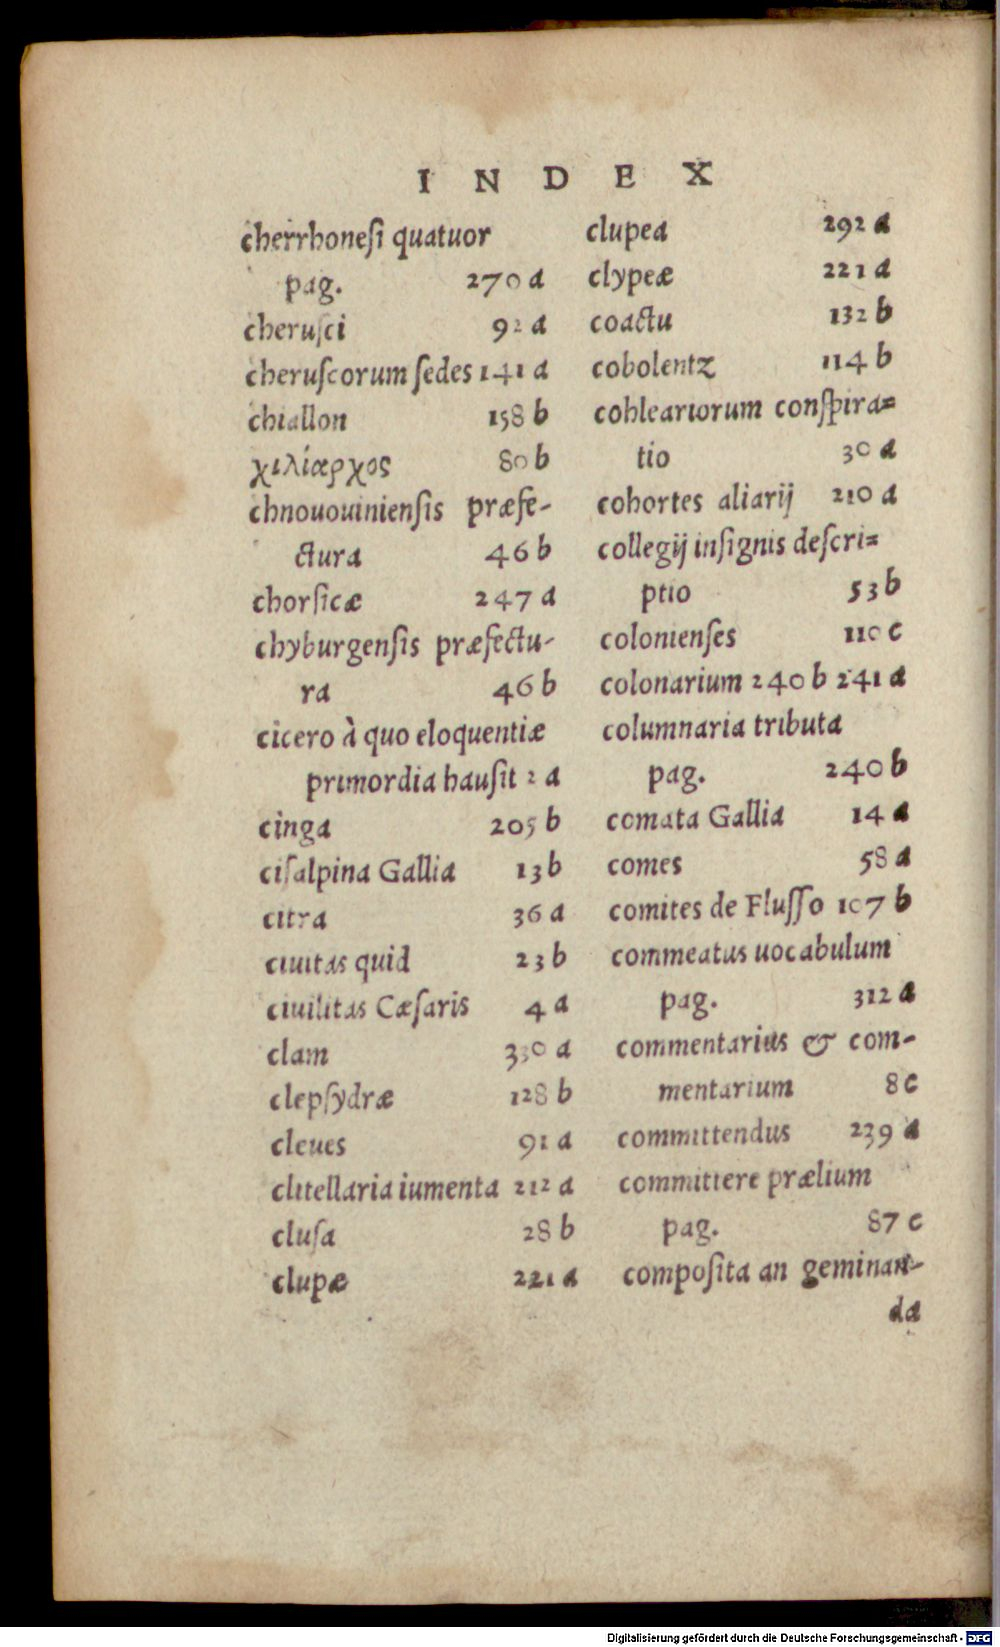 INDEX
cherrhonesi quatuor
pag. 270 a
cherusci 92 a
cheruscorum sedes 141 a
chiallon 158 b
χιλίαρχος 80 b
chnououiniensis præfe-
ctura 46 b
chorsicæ 247 a
chyburgensis præfectu-
ra 46 b
cicero à quo eloquentiæ
primordia hausit 2 a
cinga 205 b
cisalpina Gallia 13 b
citra 36 a
ciuitas quid 23 b
ciuilitas Cæsaris 4 a
clam 330 a
clepsydræ 128 b
cleues 91 a
clitellaria iumenta 212 a
clusa 28 b
clupæ 221 a
clupea 292 a
clypeæ 221 a
coactu 132 b
cobolentz 114 b
cohleariorum conspira=
tio 30 a
cohortes aliarij 210 a
collegij insignis descri=
ptio 53 b
colonienses 110 c
colonarium 240 b 241 a
columnaria tributa
pag. 240 b
comata Gallia 14 a
comes 58 a
comites de Flusso 107 b
commeatus uocabulum
pag. 312 a
commentarius & com-
mentarium 8 c
committendus 239 a
committere prælium
pag. 87 c
composita an geminan-
da
Digitalisierung gefördert durch die Deutsche Forschungsgemeinschaft - DFG